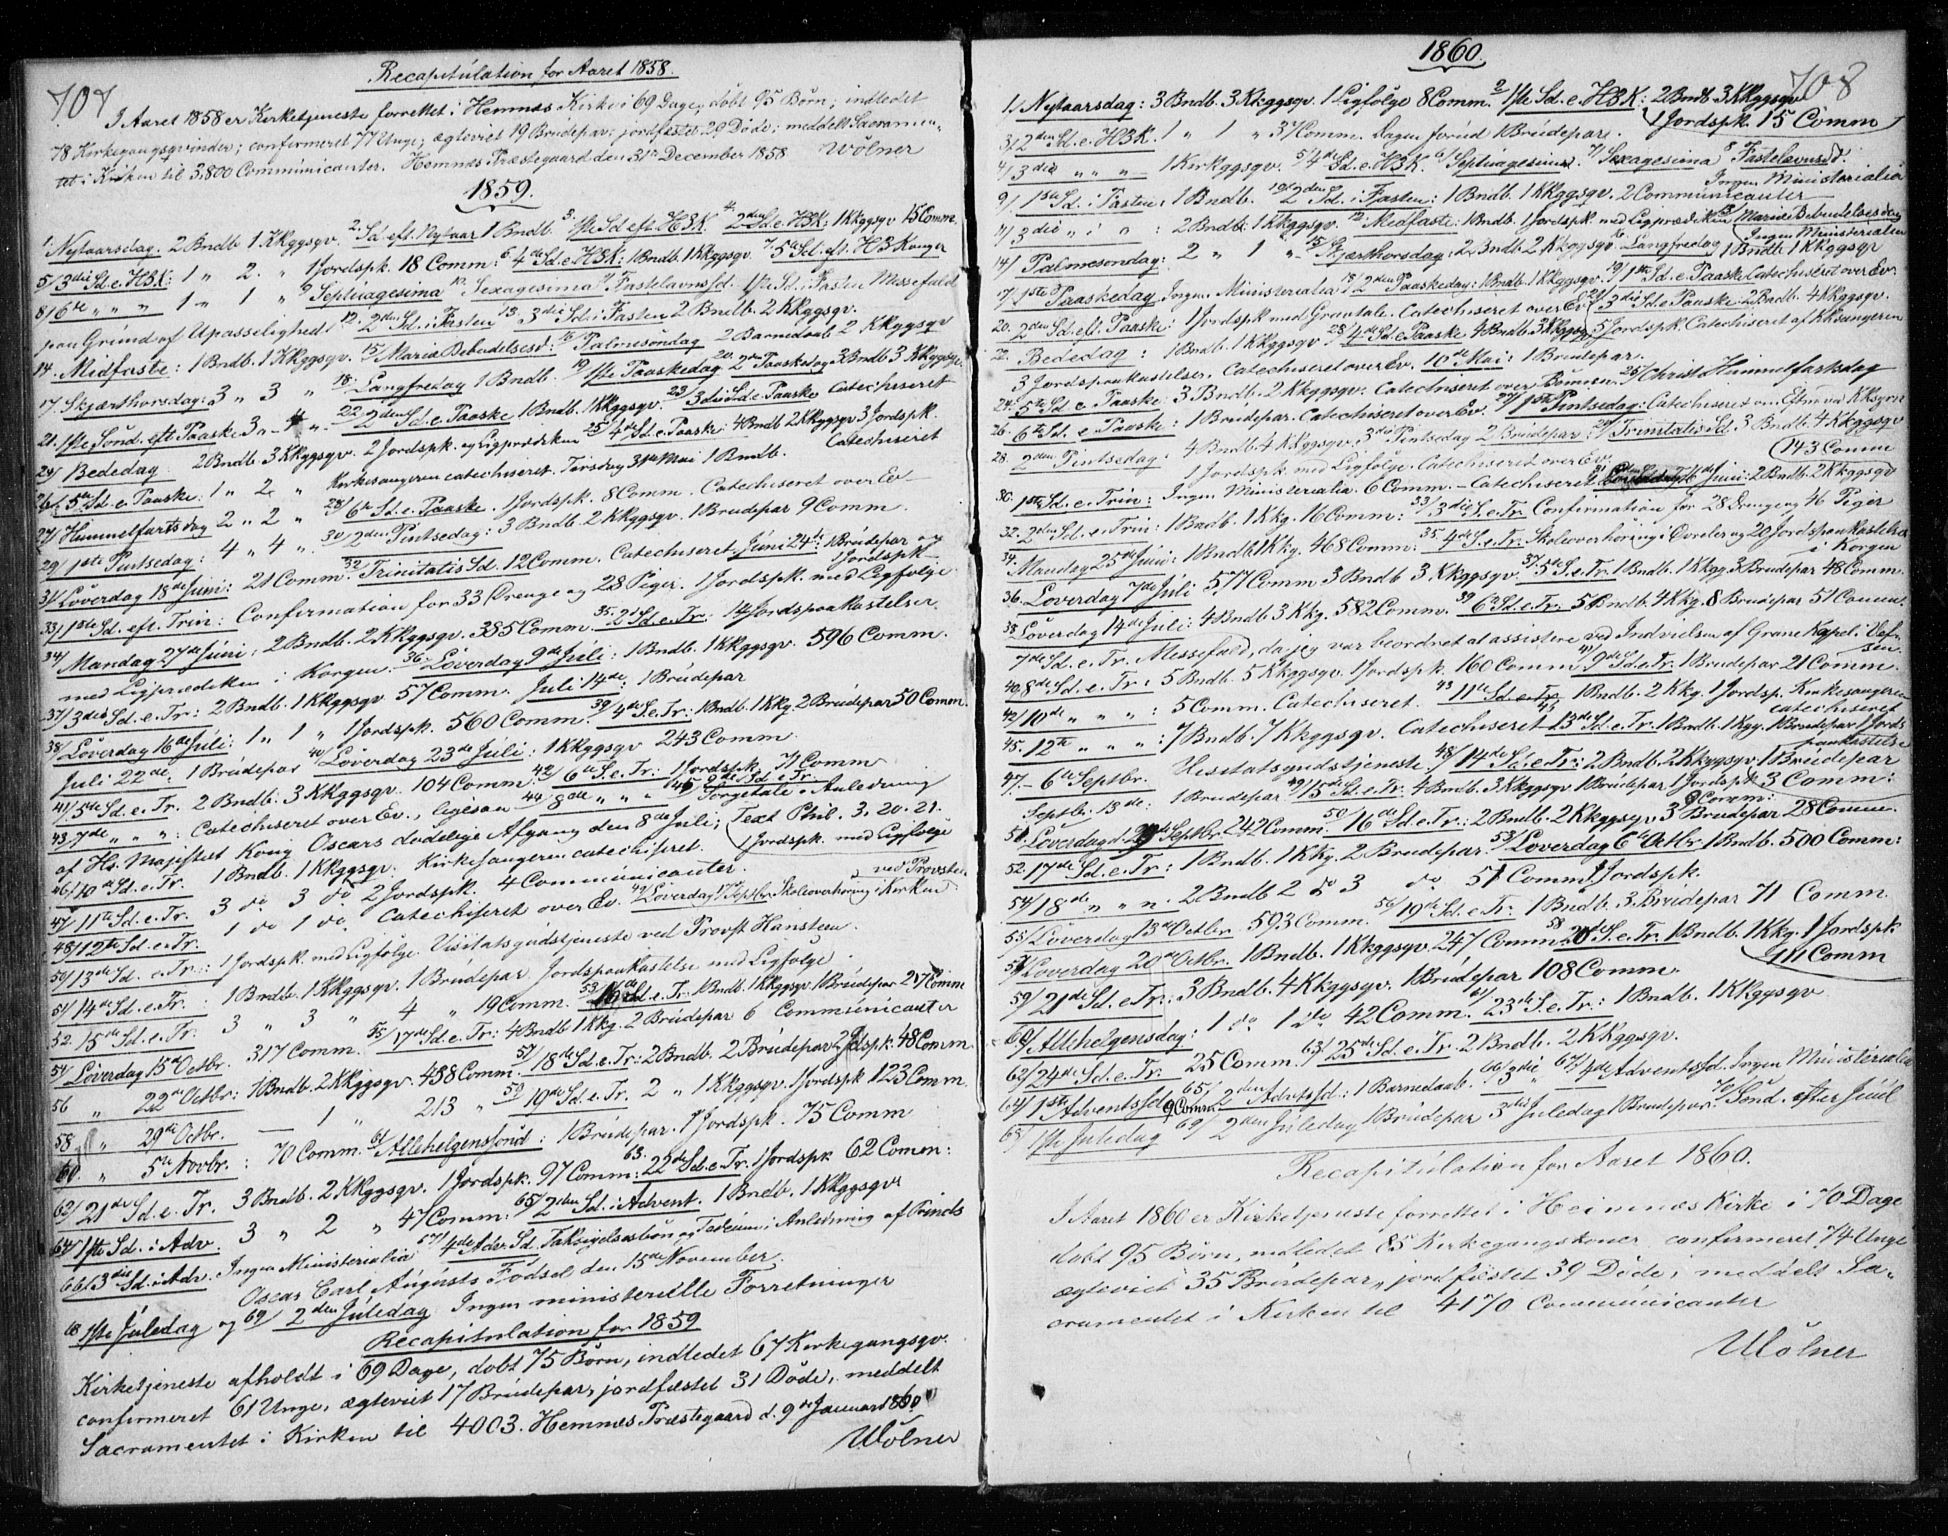 707
Recapitulation for Aaret 1858.
I Aaret 1858 er Kirketjeneste forrettet i Hemnæs Kirke i 69 Dage, døbt 95 Børn; indledet
78 Kirkegangsqvinder; confirmeret 77 Unge; ægteviet 19 Brudepar; jordfæstet 29 Døde; meddelt Sacramen-
tet i Kirken til 3,800 Communicanter. Hemnes Præstegaard den 31te December 1858 Wölner
1859.
1. Nytaarsdag. 2 Bndb 1 KKggsqv. 2. Sd eft. Nytaar 1 Bndb. 3. 1ste Sd eft. H3K 4. 2den Sd. e. H3K: 1 Kkggsqv 15 Comm.
5/ 3die Sd. e. H3K: 1 " 2. " 1 Jordspk. 18 Comm. 6. 4de Sd. e. H3K: 1 Bndb. 1 Kkggsqv. 7. 5te Sd. eft. H3Konger
8/ 6te " " " 1 " 1 " 9 Septuagesima 10. Sexagesima 11 Fastelavnsd. 1ste Sd. i Fasten Messefald
paa Grund af Upasselighed. 12. 2den Sd. i Fasten 13. 3die Sd. i Fasten 2 Bndb. 2 KKggsqv.
14. Midfaste: 1 Bndb. 1 KKggsqv. 15/ Mariæ Bebudelsesd: 16/ Palmesöndag 2 Barnedaab 2 KKggsqv
17. Skjærthorsdag: 3 " 3 " 18. Langfredag 1 Bndb. 19/ 1ste Paaskedag 20. 2den Paaskedag 3 Bndb 3 KKggsqv.
21. 1ste Sönd. eft Paaske 3 " 4 " 22 2den Sd. e. Paaske 1 Bndb. 1 KKggsqv. 23/ 3die Sd. e. Paaske Catechiseret
24/ Bededag 2 Bndb 3 KKggsqv. 2 Jordspk. og Ligprædiken 25/ 4de Sd. e. Paaske: 4 Bndb 2 Kkggsqv 3 Jordspk.
Catechiseret
26/ 5te Sd. e. Paaske: 1 " 2 " Kirkesangeren catechiseret. Tirsdag 31te Mai 1 Bndb.
27/ Himmelfartsdag 2 " 2 " 28/ 6te Sd. e. Paaske. 1 Jordspk. 8 Comm. Catechiseret over Ev.
29/ 1ste Pintsedag: 4 " 4 " 30/ 2den Pintsedag: 3 Bndb. 2 KKggsqv. 1 Brudepar 9 Comm.
31/ Löverdag 18de Juni: 21 Comm. 32/ Trinitatis Sd. 12 Comm. Catechiseret. Juni 24de: 1 Brudepar og
1 Jordspk
33/ 1ste Sd. eft. Trin: Confirmation for 33 Drenge og 28 Piger. 1 Jordspk. med Ligfølge
34/ Mandag 27de Juni: 2 Bndb. 2 KKggsqv. 385 Comm. 35. 2 Sd. e. Tr. 14 Jordspaakastelser.
med Ligprædiken i Korgen. 36. Löverdag 9de Juli: 1 Bndb. 1 KKggsqv. 596 Comm.
37/ 3die Sd. e. Tr: 2 Bndb. 1 KKggsqv 57 Comm. Juli 14de: 1 Brudepar
38/ Löverdag 16de Juli: 1 " 1 " 1 Jordspk. 560 Comm. 39/ 4de S. e. Tr: 1 Bndb. 1 Kkg 2 Brudepar 50 Comm.
Juli 22de: 1 Brudepar 40/ Löverdag 23de Juli: 1 KKggsqv 243 Comm.
41/ 5te Sd. e. Tr. 2 Bndb. 3 KKggsqv. 104 Comm. 42/ 6te S. e. Tr: 1 Jordspk. 71 Comm
43. 7de " " ": Catechiseret over Ev., ligesaa 44/ 8de " " " 45 9de Sd. e. Tr. Sørgetale i Anledning
af Hs. Majestæt Kong Oscars dødelige Afgang den 8de Juli; Text Phil. 3. 20. 21.
46/ 10de Sd. e. Tr. 1 Bndb. 1 KKggsqv. Kirkesangeren catechiseret. 1 Jordspk. med Ligfølge
47/ 11te Sd. e. Tr. 3 do 3 do 2 Jordspk. 4 Communicanter.
48/ 12te Sd. e. Tr. 1 do 1 do. Catechiseret over Ev. 49/ Löverdag 17de Septbr. Skoleoverhøring i Kirken
ved Provsten
50/ 13de Sd. e. Tr.: 1 Jordspk. med Ligfølge. Visitatsgudstjeneste ved Provst Hansteen.
51/ 14de Sd. e. Tr. 1 Bndb. 1 KKggsqv. 1 Brudepar Jordspaakastelse med Ligfølge.
52. 15de Sd. e. Tr: 3 " 3 " 4 " 19 Comm. 53. 16de Sd. e. Tr. 1 Bndb. 1 KKggsqv. 1 Brudepar 27 Comm
54/ Löverdag 15de Octbr. 317 Comm. 55/ 17de Sd. e. Tr: 4 Bndb 1 Kkg. 2 Brudepar 6 Communicanter
56 " 22de Octbr: 1 Bndb. 2 KKggsqv. 438 Comm. 57/ 18de Sd. e. Tr: 2 Bndb. 2 Brudepar 2 Jdspk. 48 Comm.
58/ " 29de Octbr. — 1 " 213 " 59 19de Sd. e. Tr. 2 " 1 KKggsqv. 1 Jordspk 123 Comm.
60. " 5te Novbr.: 70 Comm. 61 Allehelgenssönd: 1 Brudepar. 1 Jordspk. 75 Comm
62/ 21de Sd. e. Tr. 3 Bndb. 2 KKggsqv. 1 Jordspk. 97 Comm: 63. 22de Sd. e. Tr. 1 Jordspk 62 Comm:
64/ 1ste Sd. i Adv. 3 " 2 " 47 Comm: 65/ 2den Sd. i Advent. 1 Bndb. 1 KKggsqv
66/ 3die Sd. i Adv. Ingen Ministerialia 67/ 4de Adv: Sd. Taksigelsesbøn og Tedeum i Anledning af Prinds
Oscar Carl Augusts Fødsel den 15de November
68 1ste Juledag og 69/ 2den Juledag Ingen ministerielle Forretninger
Recapitulation for 1859
Kirketjeneste afholdt i 69 Dage, døbt 75 Børn, indledet 67 Kirkegangsqv.
confirmeret 61 Unge, ægteviet 17 Brudepar, jordfæstet 31 Døde, meddelt
Sacramentet i Kirken til 4003. Hemnæs Præstegaard d. 9de Januar 1860
Wölner
708
1860.
1. Nytaarsdag: 3 Bndb. 3 Kkggsqv. 1 Ligfølge 8 Comm. 2 1ste Sd. e. H3K: 2 Bndb 3 Kkggsqv
1 Jordspk. 15 Comm
3/ 2den Sd. e. H3K. 1 " 1 " 37 Comm. Dagen forud 1 Brudepar.
4/ 3die " " " 1 Kirkggsqv. 5/ 4de Sd. e. H3K. 6/ Septuagesima. 7/ Sexagesima 8 Fastelavnsd.
Ingen Ministerialia
9/ 1ste Sd. i Fasten: 1 Bndb. 10. 2den Sd. i Fasten: 1 Bndb. 1 KKggsqv. 2 Communicanter
11/ 3die " i " : 2 Bndb. 1 Kkggsqv. 12. Midfaste: 1 Bndb. 1 Jordspk med Ligprædiken 13 Mariæ Bebudelsesdag
Ingen Ministerialia
14/ Palmesondag: 2 " 1 " 15. Skjærthorsdag: 2 Bndb 2 Kkggsqv. 16 Langfredag 1 Bndb. 1 KKggsqv
17/ 1ste Paaskedag Ingen Ministerialia 18/ 2den Paaskedag: 1 Bndb. 1 Kkggsqv. 19/ 1ste Sd. e Paask Catechiseret over Ev.
20. 2den Sd. eft. Paaske: 1 Jordspk med Gravtale. Catechiseret over Ev. 21 3die Sd. e Paaske. 2 Bndb. 4 Kkggsqv.
5 Jordspk. Catechiseret af KKsangeren
22. Bededag: 1 Bndb. 1 KKggsqv 23/ 4de Sd. e Paaske 4 Bndb. 3 Kkggsqv
3 Jordspaakastelser. Catechiseret over Ev. 10de Mai: 1 Brudepar.
24. 5te Sd. e. Paaske: 3 Bndb. 2 KKggsqv. Catechiseret over Bønnen. 25/ Christi Himmelfartsdag
26. 6te Sd. e Paaske: 1 Brudepar. Catechiseret over Ev. 27/ 1ste Pintsedag: Catechiseret
28. 2den Pintsedag: 4 Bndb. 4 KKggsqv. 3die Pintsedag 2 Brudepar 29/ Trinitatis Sd. 3 Bndb. 4 Kkggsqv
143 Comm
1 Jordspk med Ligfølge. Catechiseret over Ev.
30. 1ste Sd. e. Trin: Ingen Ministerialia. 6 Comm. – Catechiseret 31 Juni: 2 Bndb. 2 Kkggsqv
32. 2den Sd. e. Trin: 1 Bndb. 1 Kkg. 16 Comm: 33/ 3die S. e. Tr. Confirmation for 28 Drenge og 46 Piger
34. Mandag 25de Juni: 1 Bndb 1 Kkg. 468 Comm: 35. 4de S. e. Tr. Skoleoverhøring i og 20 Jordspaakastelser
i Korgen
36. Löverdag 7de Juli 577 Comm 3 Bndb 3 KKggsqv. 37. 5te S. e. Tr. 1 Bndb. 1 Kkgg. 3 Brudepar 48 Comm.
38 Löverdag 14de Juli: 4 Bndb 3 Kkg. 582 Comm. 39 6 Sd. e. Tr. 5 Bndt. 4 Kkg. 8 Brudepar 51 Comm.
7de Sd. e. Tr. Messefald, da jeg var beordret at assistere ved Indvielsen af Grane Kapel i Vef-
sen.
40. 8de Sd. e. Tr: 5 Bndb. 5 KKggsqv. 1 Jordspk. 160 Comm. 41/ 9de Sd. e. Tr. 1 Brudepar 21 Comm.
42/ 10de " " " : 5 Comm. Catechiseret. 43 11te Sd. e. Tr 1 Bndb. 2 Kkg. 1 Jordsp. Kirkesangeren
catechiseret
45. 12te " " " : 7 Bndb. 7 Kkggsqv. Catechiseret 13de Sd. e. Tr. 1 Bndb. 1 Kgg. 1 Brudepar 1 Jords
paakastelse
47. – 6te Septbr. Visitatsgudstjeneste 48/ 14de Sd. e. Tr: 2 Bndb. 2 Kkggsqv. 1 Brudepar
Septb. 13de: 1 Brudepar 49/ 15de Sd. e. Tr. 4 Bndb. 3 Kkggsqv 1 Brudepar 1 Jordspk 3 Comm:
9 Comm:
51. Löverdag d. Septbr. 242 Comm. 50/ 16de Sd. e. Tr: 2 Bndb. 2 Kkggsqv 3 Brudepar 28 Comm.
52. 17de Sd. e. Tr: 1 Bndb. 1 Kkg. 2 Brudepar. 53/ Löverdag 6te Octbr. 1 Bndb. 500 Comm:
54/ 18de " " ". 2 Bndb 2 do 3 do 51 Comm 1 Jordspk.
55/ Löverdag 13de Octbr. 593 Comm. 56/ 19de Sd. e Tr: 1 Bndb. 3 Brudepar 71 Comm.
57/ Löverdag 20de Octbr. 1 Bndb. 1 Kkggsqv. 247 Comm. 58 20de S. e. Tr. 1 Bndb. 1 Kkg. 1 Jordspk
Comm
59/ 21de Sd. e Tr.: 3 Bndb. 4 Kkggsqv. 1 Brudepar 108 Comm.
60/ Allehelgensdag: 1 do 1 do 42 Comm. 61/ 23de S. e. Tr.: 1 Bndb. 1 KKggsqv
62/ 24de Sd. e. Tr. 25 Comm. 63/ 25de Sd. e. Tr. 2 Bndb. 2 Kkggsqv.
64/ 1ste Adventssd 9 Comm 65/ 2den Advtssd: 1 Barnedaab. 66/ 3die " 67/ 4de Adventssd. Ingen Ministerialia
68/ 1ste Juledag 69/ 2den Juledag 1 Brudepar 3die Juledag 1 Brudepar. 70 Sönd. efter Juul
Recapitulation for Aaret 1860.
I Aaret 1860 er Kirketjeneste forrettet i Hemnæs Kirke i 70 Dage
døbt 95 Børn, indledet 85 Kirkegangskoner, confirmeret 74 Unge
ægteviet 35 Brudepar, jordfæstet 39 Døde, meddelt Sa-
cramentet i Kirken til 4170 Communicanter
Wölner